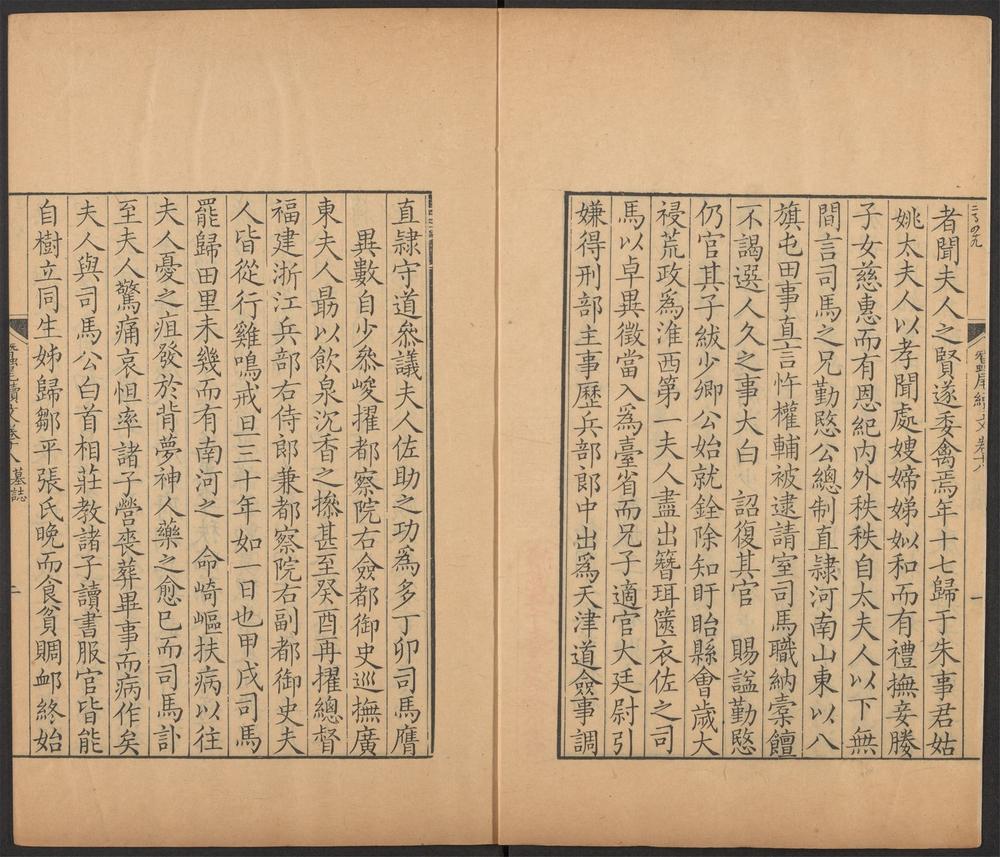 者聞夫人之賢遂委禽焉年十七歸于朱事君姑
姚太夫人以孝聞處嫂嫦娣姒和而有禮撫妾媵
子女慈惠而有恩紀内外秩秩自太夫人以下無
間言司馬之兄勤愍公總制直隸河南山東以八
旗屯田事直言忤權輔被逮請室司馬職納橐饘
不謁選人久之事大白　詔復其官　賜諡勤愍
仍官其子紱少卿公始就銓除知盱眙縣會歲大
祲荒政為淮西第一夫人盡出簪珥篋衣佐之司
馬以卓異徵當入為臺省而兄子適官大廷尉引
嫌得刑部主事歷兵部郎中出為天津道僉事調
直隷守道叅議夫人佐助之功為多丁卯司馬膺
異數自少叅峻擢都察院右僉都御史巡撫廣
東夫人朂以飲泉沉香之摻甚至癸酉再擢總督
福建浙江兵部右侍郎兼都察院右副都御史夫
人皆從行雞鳴戒旦三十年如一日也甲戌司馬
罷歸田里未幾而有南河之　命崎嶇扶病以往
夫人憂之疽發於背夢神人藥之愈已而司馬訃
至夫人驚痛哀怛率諸子營喪葬畢事而病作矣
夫人與司馬公白首相莊教諸子讀書服官皆能
自樹立同生姊歸鄒平張氏晚而食貧賙䘏終始
墓誌
二